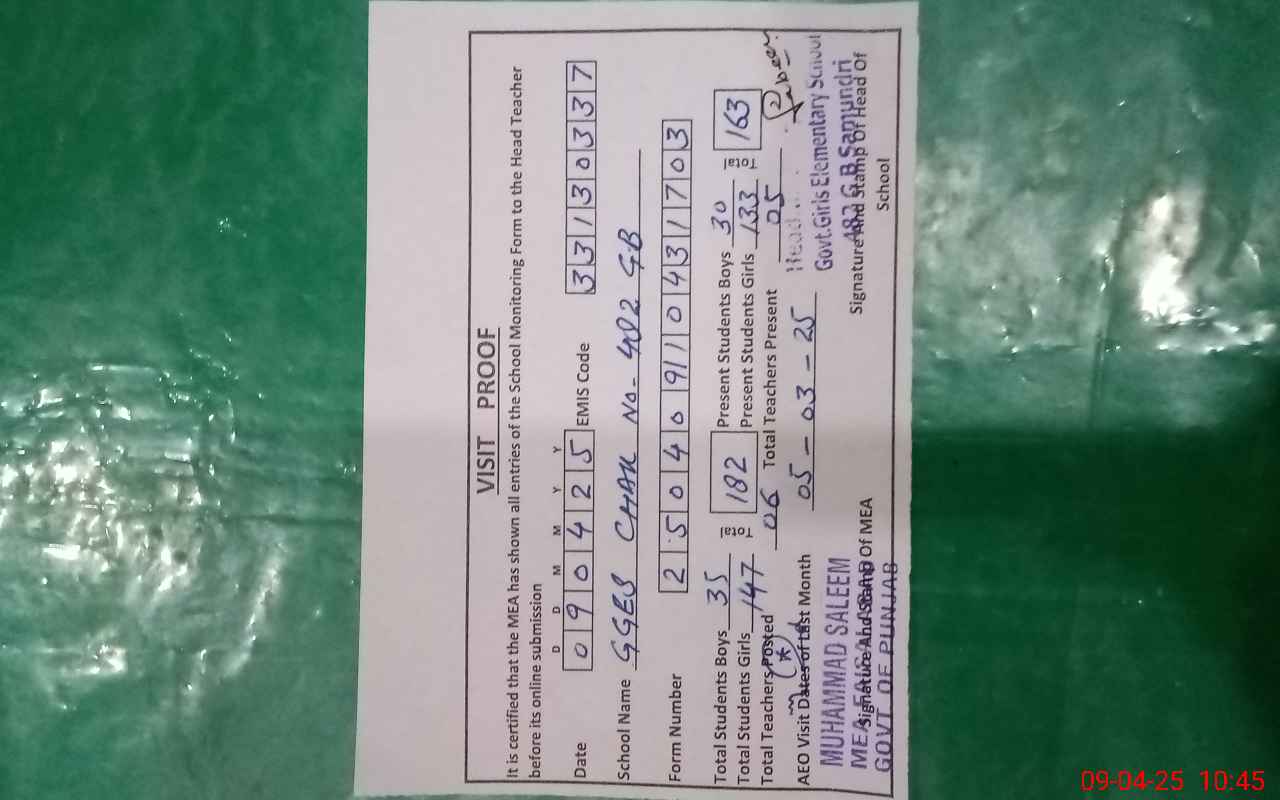 VISIT PROOF
It is certified that the MEA has shown all entries of the School Monitoring Form to the Head Teacher
before its online submission
D D M M Y Y
Date 090425 EMIS Code 33130337
School Name GGES CHAK No- 402 GB
Form Number 250409110431703
Total Students Boys 35 Total 182 Present Students Boys 30 Total 163
Total Students Girls 147 Present Students Girls 133
Total Teachers Posted 06 Total Teachers Present 05
AEO Visit Dates of Last Month 05-03-25
MUHAMMAD SALEEM
MEA
GOVT OF PUNJAB
Signature And Stamp Of MEA
Head
Govt.Girls Elementary School
G.B Samundri
Signature And Stamp Of Head Of
School
09-04-25 10:45